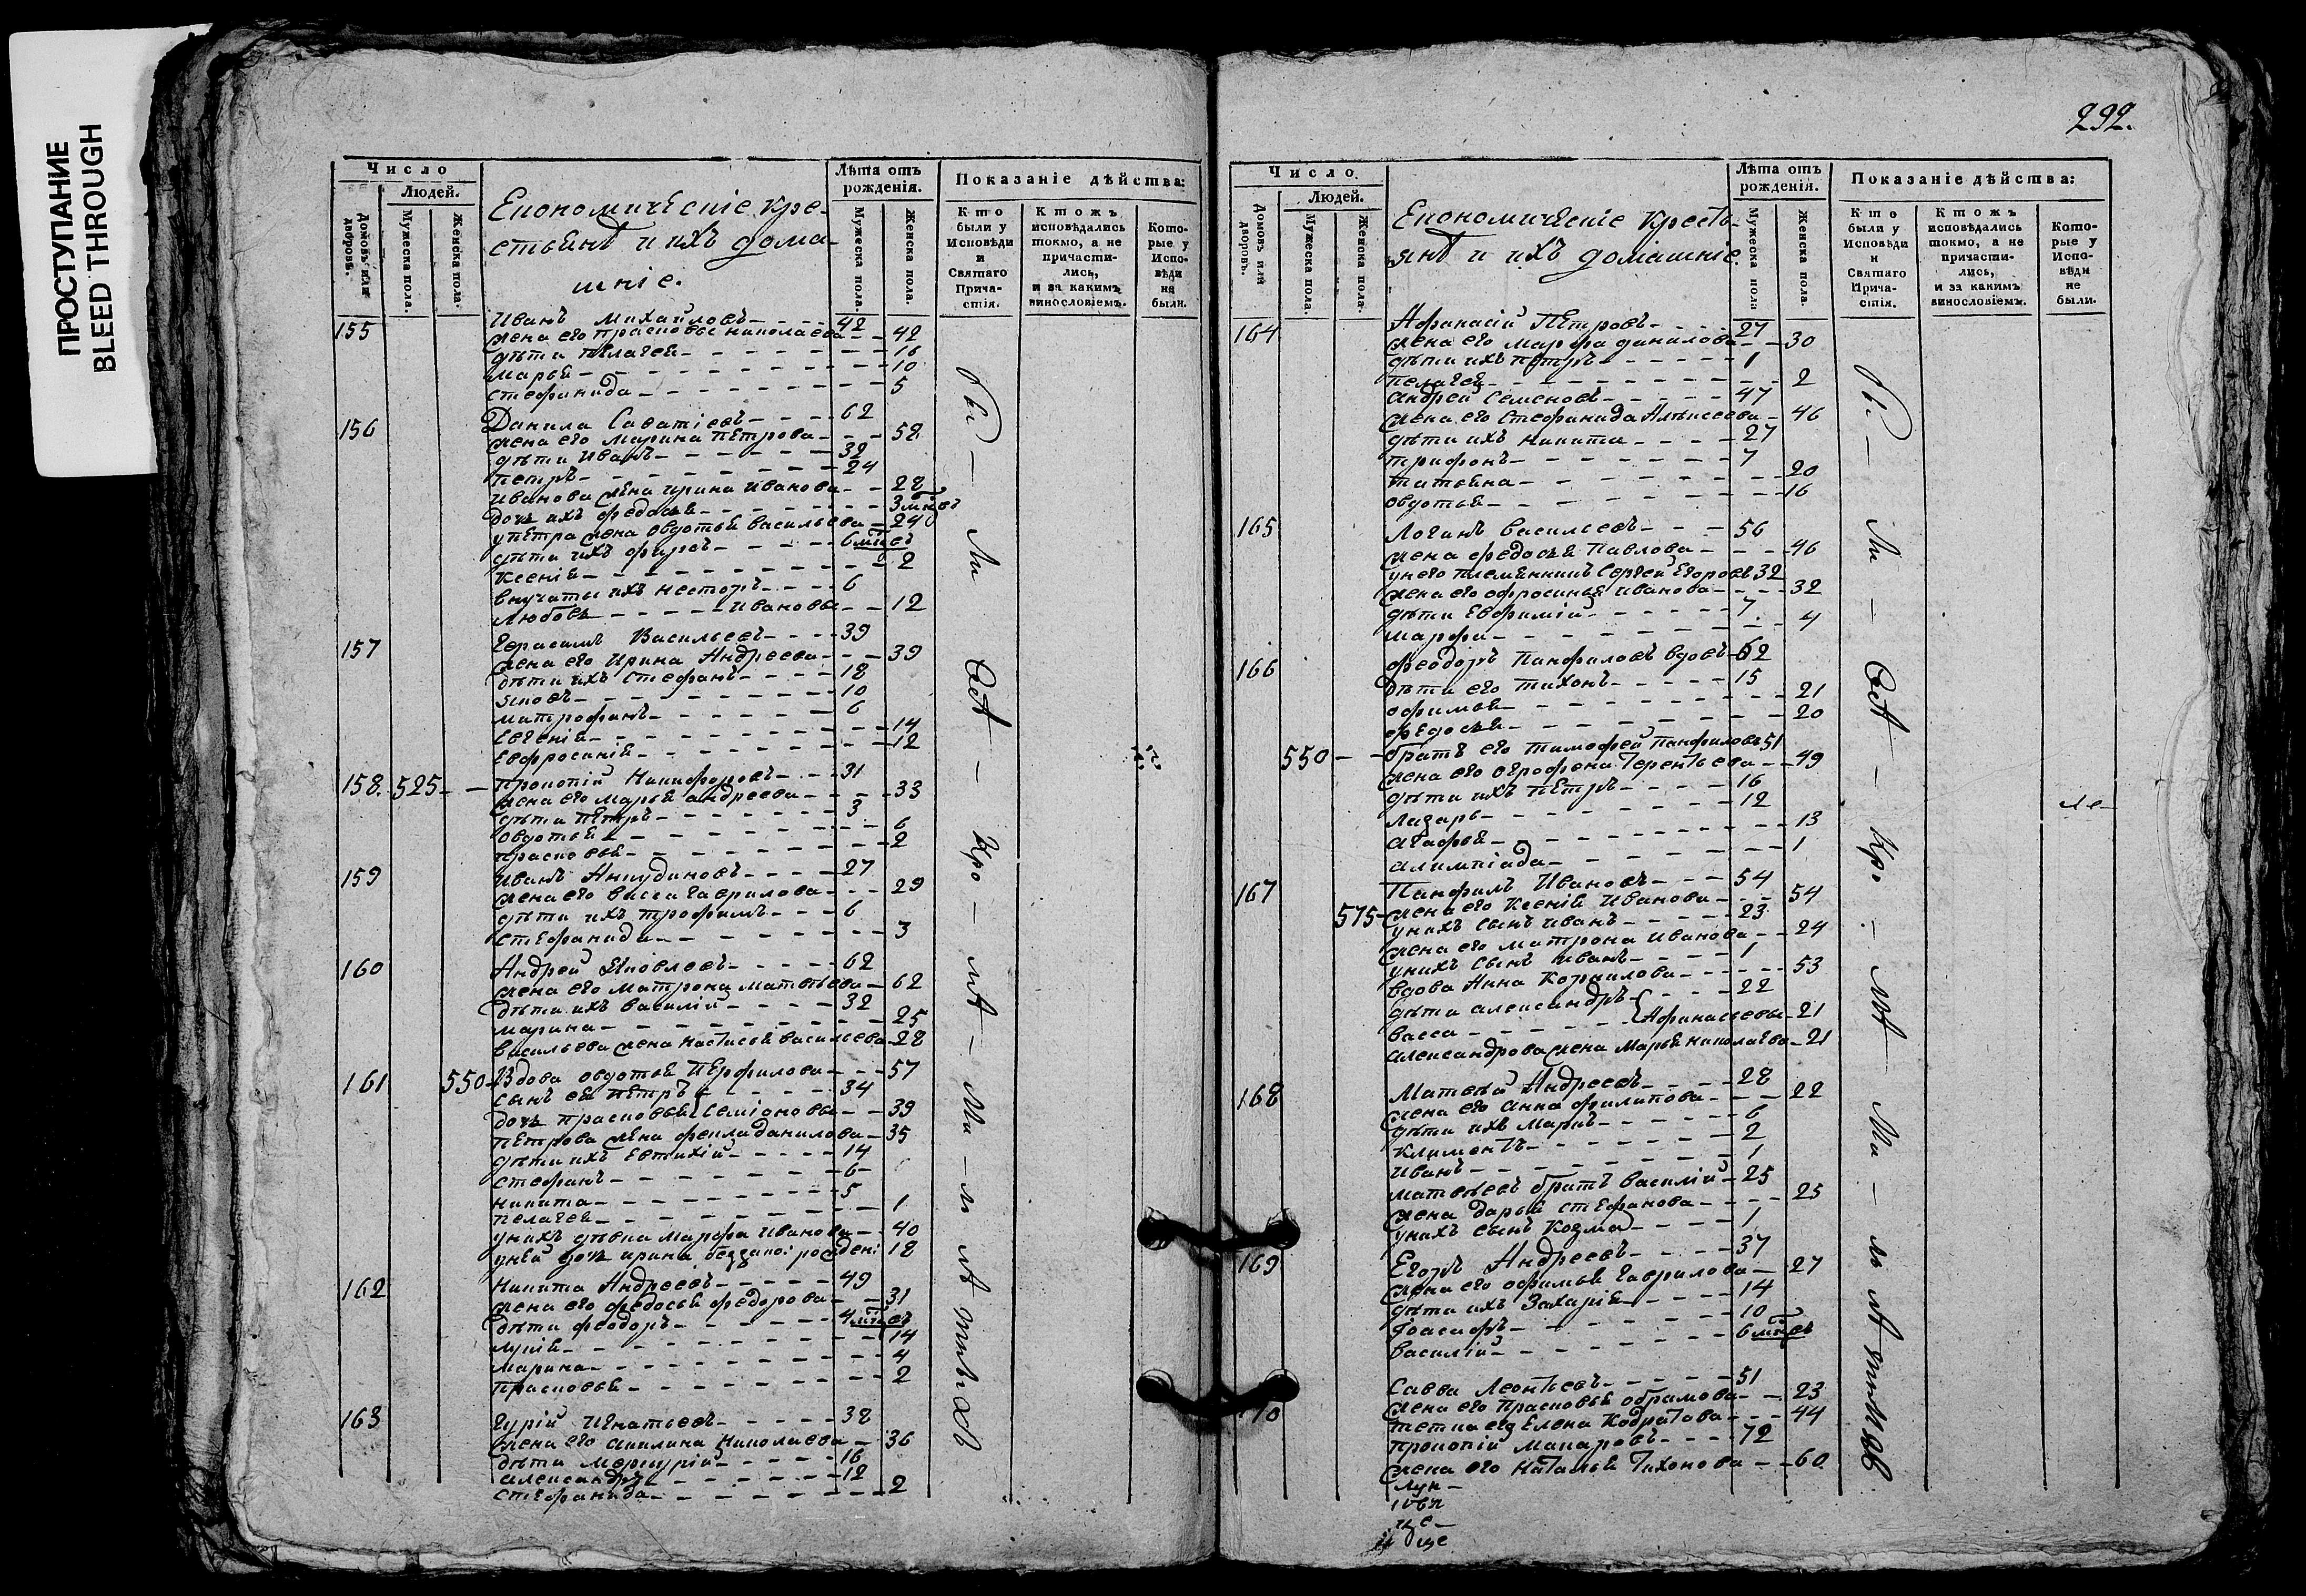 ПРОСТУПАНИЕ
BLEED THROUGH
Число
Людей.
Домовъ или дворовъ.
Мужеска пола.
Женска пола.
Економическіе кре-
стьянъ и ихъ дома-
шніе.
Лѣта отъ рожденія.
Мужеска пола.
Женска пола.
Показаніе дѣйства:
Кто были у Исповѣди и Святаго Прича-стія.
Ктожъ исповѣдались токмо, а не причасти-лись, и за какимъ винословіемъ.
Кото-рые у Испо-вѣди не были.
155 Иванъ Михайловъ - - - 42
жена его Прасковья николаева - - 42
дѣти пелагея - - - 16
марья - - - 10
стефанида - - - 5
156 Данила Саватіевъ - - - 62
жена его Марина петрова - - - 58
дѣти Иванъ - - - 32
петръ - - - 24
иванова жена ирина иванова - - 28
дочь ихъ федосья - - - 3 мцовъ
упетра жена овдотья васильева - 24
дѣти ихъ фирсъ - - - 6 мцовъ
ксенія - - - 2
внучаты ихъ несторъ - - - 6
любовь - - - ивановы - - 12
157 Герасимъ Васильевъ - - - 39
жена его Ирина Андреева - - - 39
дѣти ихъ стефанъ - - - 18
яковъ - - - 10
митрофанъ - - - 6
евгенія - - - 14
евфросинія - - - 12
158. 525 - - прокопій Никифоровъ - - - 31
жена его марья андреева - - - 33
дѣти петръ - - - 3
овдотья - - - 6
прасковья - - - 2
159 иванъ Аникудиновъ - - - 27
жена его васса гаврилова - - - 29
дѣти ихъ трофимъ - - - 6
стефанида - - - 3
160 Андрей Яковлевъ - - - 62
жена его матрона матвѣева - 62
дѣти ихъ василій - - - 32
марина - - - 25
васильева жена настасья васильева - 28
161 550 - Вдова овдотья Перфилова - - - 57
сынъ ея петръ - - - 34
дочь прасковья семіоновы - - 39
петрова жена фекла данилова - 35
дѣти ихъ евтихій - - - 14
стефанъ - - - 6
никита - - - 5
пелагея - - - 1
унихъ дѣвка марфа иванова - - 40
уней дочь ирина беззакон рожден 18
162 никита Андреевъ - - - 49
жена его федосья федорова - - 31
дѣти феодоръ - - - 4 мцовъ
лукія - - - 14
марина - - - 4
прасковья - - - 2
163 Гурій игнатьевъ - - - 38
жена его акилина николаева - 36
дѣти меркурій - - - 16
александръ - - - 12
стефанида - - - 2
292.
Число
Людей.
Домовъ или дворовъ.
Мужеска пола.
Женска пола.
Економическіе кресть-
янъ и ихъ домашніе.
Лѣта отъ рожденія.
Мужеска пола
Женска пола.
Показаніе дѣйства:
Кто были у Исповѣди и Святаго Прича-стія.
Ктожъ исповѣдались токмо, а не причасти-лись, и за какимъ винословіемъ.
Кото-рые у Испо-вѣди не были.
164 Афанасій Петровъ - - - 27
жена его марфа данилова - - 30
дѣти ихъ петръ - - - 1
пелагея - - - 2
андрей семеновъ - - - 47
жена его стефанида Алексеева - 46
дѣти ихъ никита - - - 27
трифонъ - - - 7
татьяна - - - 20
овдотья - - - 16
165 Логинъ васильевъ - - - 56
жена федосья Павлова - - - 46
унего племянникъ Сергей Егоровъ 32
жена его офросинья иванова - - - 32
дѣти Евфимій - - - 7
марфа - - - 4
166 феодоръ Панфиловъ вдовъ - 62
дѣти его тихонъ - - - 15
офимья - - - 21
федосья - - - 20
550 - - братъ его тимофей панфиловъ 51
жена его огрофена Терентьева - - 49
дѣти ихъ петръ - - - 16
лазарь - - - 12
агафья - - - 13
алимпіада - - - 1
167 Панфилъ Ивановъ - - - 54
575 - жена его Ксенія Иванова - - - 54
унихъ сынъ иванъ - - - 23
жена его матрона иванова - - 24
унихъ сынъ иванъ - - - 1
вдова Анна Корнилова - - - 53
дѣти александръ - - - 22
васса - - - Афанасьевы - 21
александрова жена марья николаева - 21
168 Матвѣй Андреевъ - - - 28
жена его анна филипова - - - 22
дѣти ихъ маркъ - - - 6
климентъ - - - 2
иванъ - - - 1
матвѣевъ братъ василій - 25
жена дарья стефанова - - - 25
унихъ сынъ козма - - - 1
169 Егоръ Андреевъ - - - 37
жена его офимья гаврилова - 27
дѣти ихъ Захарія - - - 14
Іоасафъ - - - 10
василій - - - 6 мцовъ
170 Савва Леонтьевъ - - - 51
жена его прасковья обрамова - - 23
тетка его Елена Кодратова - - - 44
прокопій макаровъ - - - 72
жена его наталья Тихонова - - 60